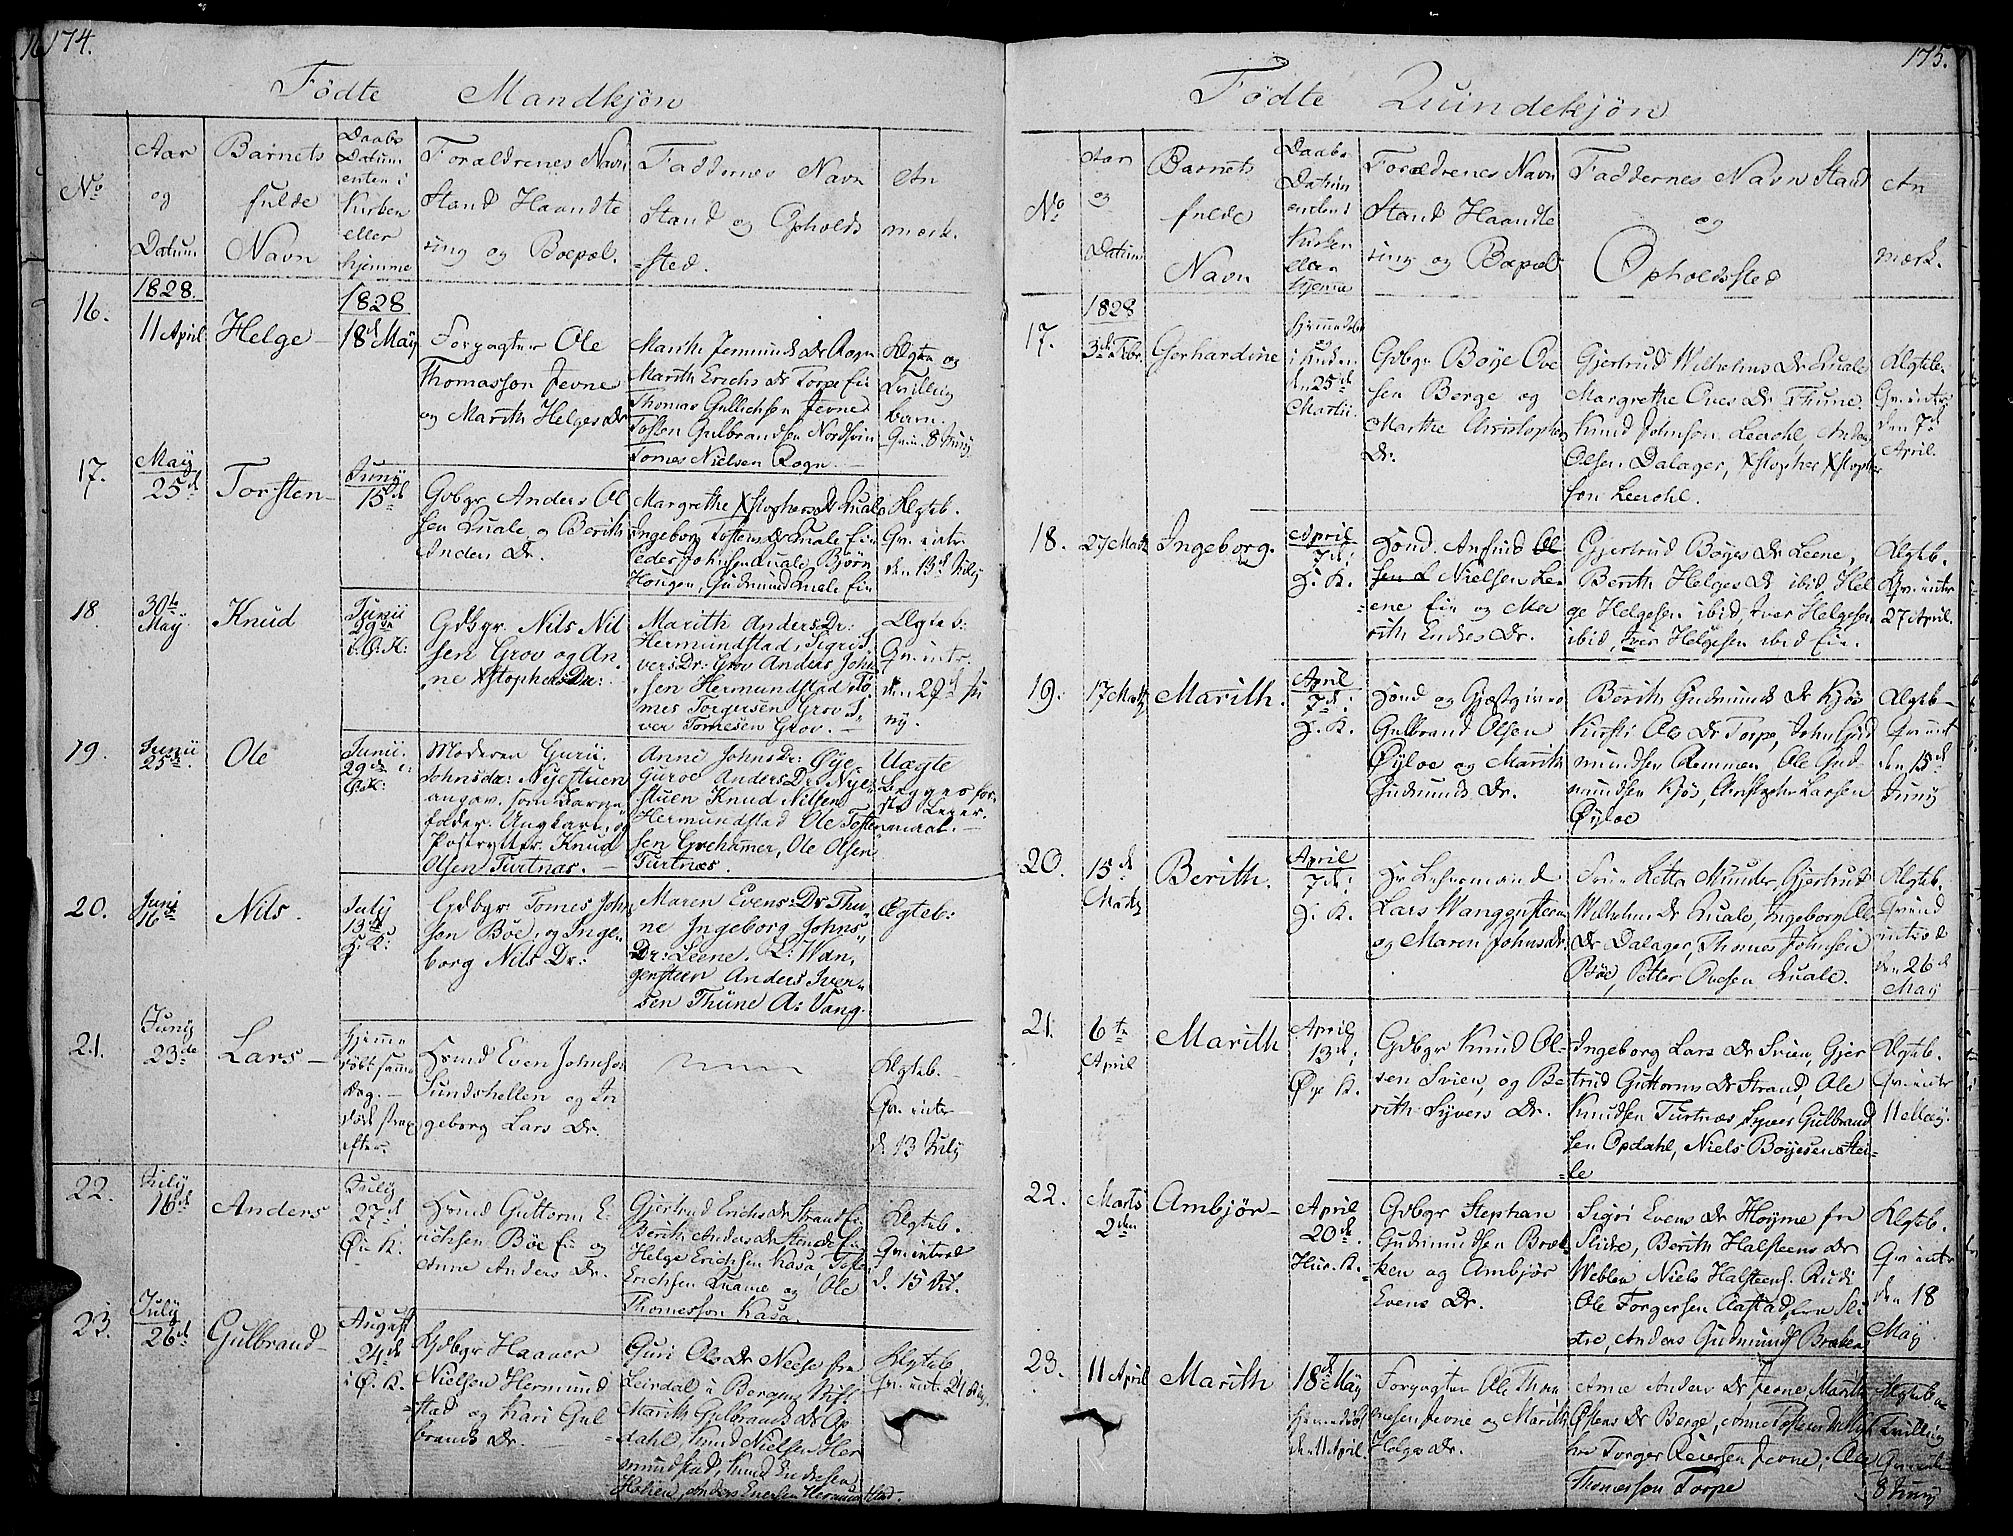 174.
Födte Mandkjön
No
Aar og Datum
Barnets fulde Navn
Daabs Datum enten i Kirken eller hjemme
Forældrenes Navn Stand Haandtering og Boepæl.
Faddernes Navn Stand og Opholdssted.
Anmærk.
16.
1828.
11 April
Helge
1828
18d May
Forpagter Ole
Thomasson Jevne
og Marith Helges Dr
Marthe Jermunds Dr Rogn
Marith Erichs Dr Torpe Eie
Thomas Gullichsen Jevne
Tosten Gulbrandsen Nordsvin
Tomes Nielsen Rogn
Ægte og
Tvilling
barn.
Qv. i. 8 Juny
17.
May
25d
Torsten
Juny
15de
Gdbgr Anders Ol
sen Quale og Berith
Anders Dr.
Margrethe Xstophers Dr Quale
Ingeborg Tostens Dr Quale Eie
Peder Johnsen Quale, Björn
Hougen, Gudmund Quale Eie
Ægteb.
Qv. intr
den 13d July
18.
30te
May
Knud
Junii
29de
i Ö. K:
Gdbgr. Nils Nil
sen Grov og An
ne Xstophers Dr:
Marith Anders Dr:
Hermundstad, Sigri I
vers Dr: Grov Anders John
sen Hermundstad To
mes Torgersen Grov I
ver Tomesen Grov. —
Ægteb:
Qv. intr.
den 29d Ju
ny.
19.
Junii
25de.
Ole
Junii.
29de i
Ö. K:
Moderen Guru
Johnsdr: Nyestuen
angav. som Barne
fader. Ungkarl og
Postrytter. Knud
Olsen Turtnæs. —
Anne Johns Dr: Öye
Guroe Anders Dr Nye
stuen Knud Nilsen
Hermundstad Ole Tosten
sen Grehamer, Ole Olsen
Turtnæs.
Uægte
begges før
ste Leier
maal. —
20.
Juni
16
Nils.
July
13de
H: K:
Gdbgr Tomes John
son Böe, og Inge
borg Nils Dr:
Maren Evens: Dr Thu
ne Ingeborg Johns
Dr: Leene. L: Wan
gensteen Anders Iver
sen Thüne A: Vang.
Ægteb:
21.
Juny
23de
Lars
hjemme
döbt samme
Dag. —
döde strax
efter.
Hmd Even Johnson
Sundshellen og In
geborg Lars Dr.
Ægteb.
Qv. intr
d. 13 July
22.
July
16de
Anders
July
27de
Öie K.
Hmd Guttorm E
richsen Böe Eie og
Anne Anders Dr.
Gjertrud Erichs Dr Strand Eie
Berith Anders Dr Stende Eie
Helge Erichsen Kasa, Tosten
Erichsen Quame og Ole
Thomesson Kasa.
Ægteb.
Qv. introd
d. 15
23.
July
26d
Gulbrand
August
24de
i Ö. K.
Gdbgr Haaver
Nielsen Hermund
stad og Kari Gul
brands Dr.
Guri Ols Dr Neese fra
Leirdal i Bergens Stift
Marith Gulbrands Dr Op
dahl, Knud Nielsen Her
mundstad, Knud Endresen
Holien, Anders Enersen Hermundstad.
Ægteb.
Qv. intr 24 Aug.
175.
Födte Quindekjön
No
Aar og Datum
Barnets fulde Navn
Daabs Datum enten i Kirken eller hjemme
Forældrenes Navn Stand Haandtering og Boepæl
Faddernes Navn Stand og Opholdssted
Anmærk.
17.
1828
3de Febr.
Gerhardine
hjemmedöbt
i Kirken
den 25de
Martii.
Gdbgr Böye Ove
sen Berge og
Marthe Christophers
Dr.
Gjertrud Wilhelms Dr Quale
Margrethe Oves Dr Thune.
Knud Johnson Leerohl, Anders
Olsen Dalager, Xstopher Xstopher
son Leerohl.
Ægteb.
Qv. intr
den 7de
April.
18.
27 Marts
Ingeborg.
April
7de.
H. K.
Hmd. Anfind Ol
sen L Nielsen Le
ene Eie og Ma
rith Endres Dr.
Gjertrud Böyes Dr Leene,
Berith Helges Dr ibid, Hel
ge Helgesen ibid, Iver Helgesen
ibid, Iver Helgesen ibid Eie.
Ægteb.
Qv. intr
27 April.
19.
17 Marts
Marith.
April
7de.
H. K.
Hmd og Gjæstgiver
Gulbrand Olsen
Öyloe og Marith
Gudmunds Dr.
Berith Gudmunds Dr Kjös
Kirsti Ols Dr Torpe, John Gud
mundsen Remmen, Ole Gud
mundsen Kjös, Christopher Larsen
Öyloe
Ægteb
Qv. intr
den 15d
Juny
20.
15de
Marts
Berith.
April
7de.
H. K.
Hr Lehnsmand
Lars Wangensteen
og Maren Johns dr.
Frue Letta Munder, Gjertrud
Wilhelms Dr Quale, Ingeborg Ole
Dr Dalager, Thomes Johnsen
Böe, Petter Ovesen Quale.
Ægteb.
Qvind
introd
den 26d
May
21.
6te
April
Marith
April
13de.
Öye K.
Gdbgr Knud Ol
sen Svien, og Be
rith Syvers Dr.
Ingeborg Lars Dr Svien, Gjer
trud Guttorms Dr Strand, Ole
Knudsen Turtnæs, Syver Gulbrand
sen Opdahl, Niels Böyesen Stei
le
Ægteb.
Qv. intr
11 May.
22.
Marts
2den
Ambjör
April
20de.
Hur. K.
Gdbgr Stephan
Gudmundsen Bræk
ken og Ambjör
Evens Dr.
Sigri Evens Dr Höyme fra
Slidre, Berith Halsteens Dr
Weblen Niels Halsteens. Rudi
Ole Torgersen Aastad fra Sli
dre, Anders Gudmunds Bræken
Ægteb.
Qv. intr
den 18
May
23.
11 April
Marith
18d May
hjemmedöbt
den 11 April.
Forpagter Ole Thom
mesen Jevne og Marith
Helges Dr.
Anne Anders Dr Jevne, Marith
Östens Dr Berge, Anne Tostens Dr
Torger Reiersen Jevne, Ole
Thomesson Torpe
Ægteb
Tvilling
Qv. intr
8 Juny